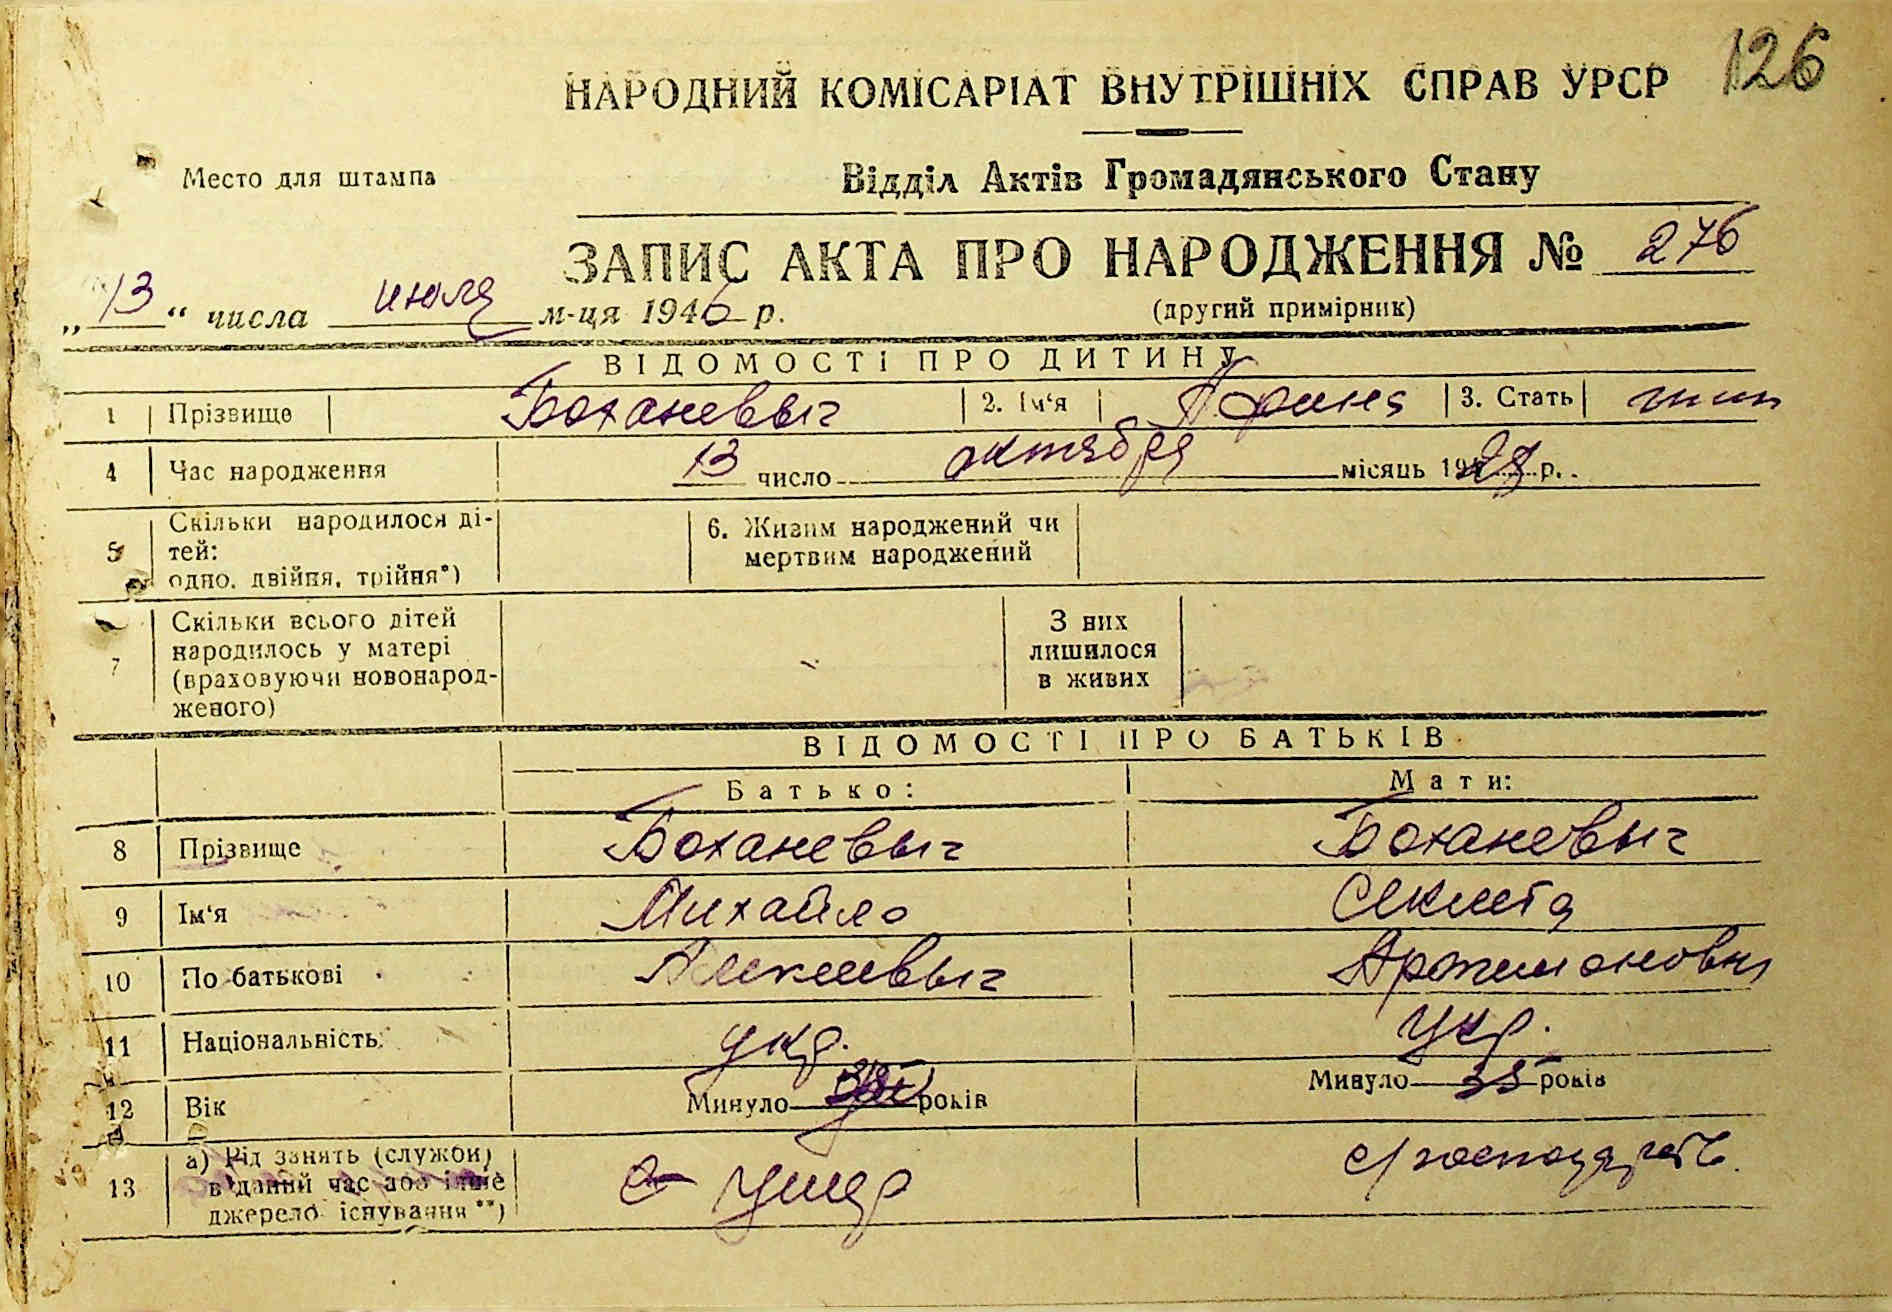 126
НАРОДНИЙ КОМІСАРІАТ ВНУТРІШНІХ СПРАВ УРСР
Место для штампа
Відділ Актів Громадянського Стану
ЗАПИС АКТА ПРО НАРОДЖЕННЯ № 276
„13“ числа июля м-ця 1946 р.
(другий примірник)
ВІДОМОСТІ ПРО ДИТИНУ
1 Прізвище Боханеввыч 2. Ім‘я Ярина 3. Стать
4 Час народження 13 число октября місяць 19 р.
5 Скільки народилося ді-
тей:
одно, двійня, трійня*)
6. Живим народжений чи
мертвим народжений
7 Скільки всього дітей
народилось у матері
(враховуючи новонарод-
женого)
З них
лишилося
в живих
ВІДОМОСТІ ПРО БАТЬКІВ
Батько: Мати:
8 Прізвище Боханеввыч Боханевыч
9 Ім‘я Михайло
10 По батькові Артимоновны
11 Національність укр. Укр.
12 Вік Минуло років Минуло 35 років
13 а) Рід занять (служби)
в даний час або інше
джерело існування**)
Умер